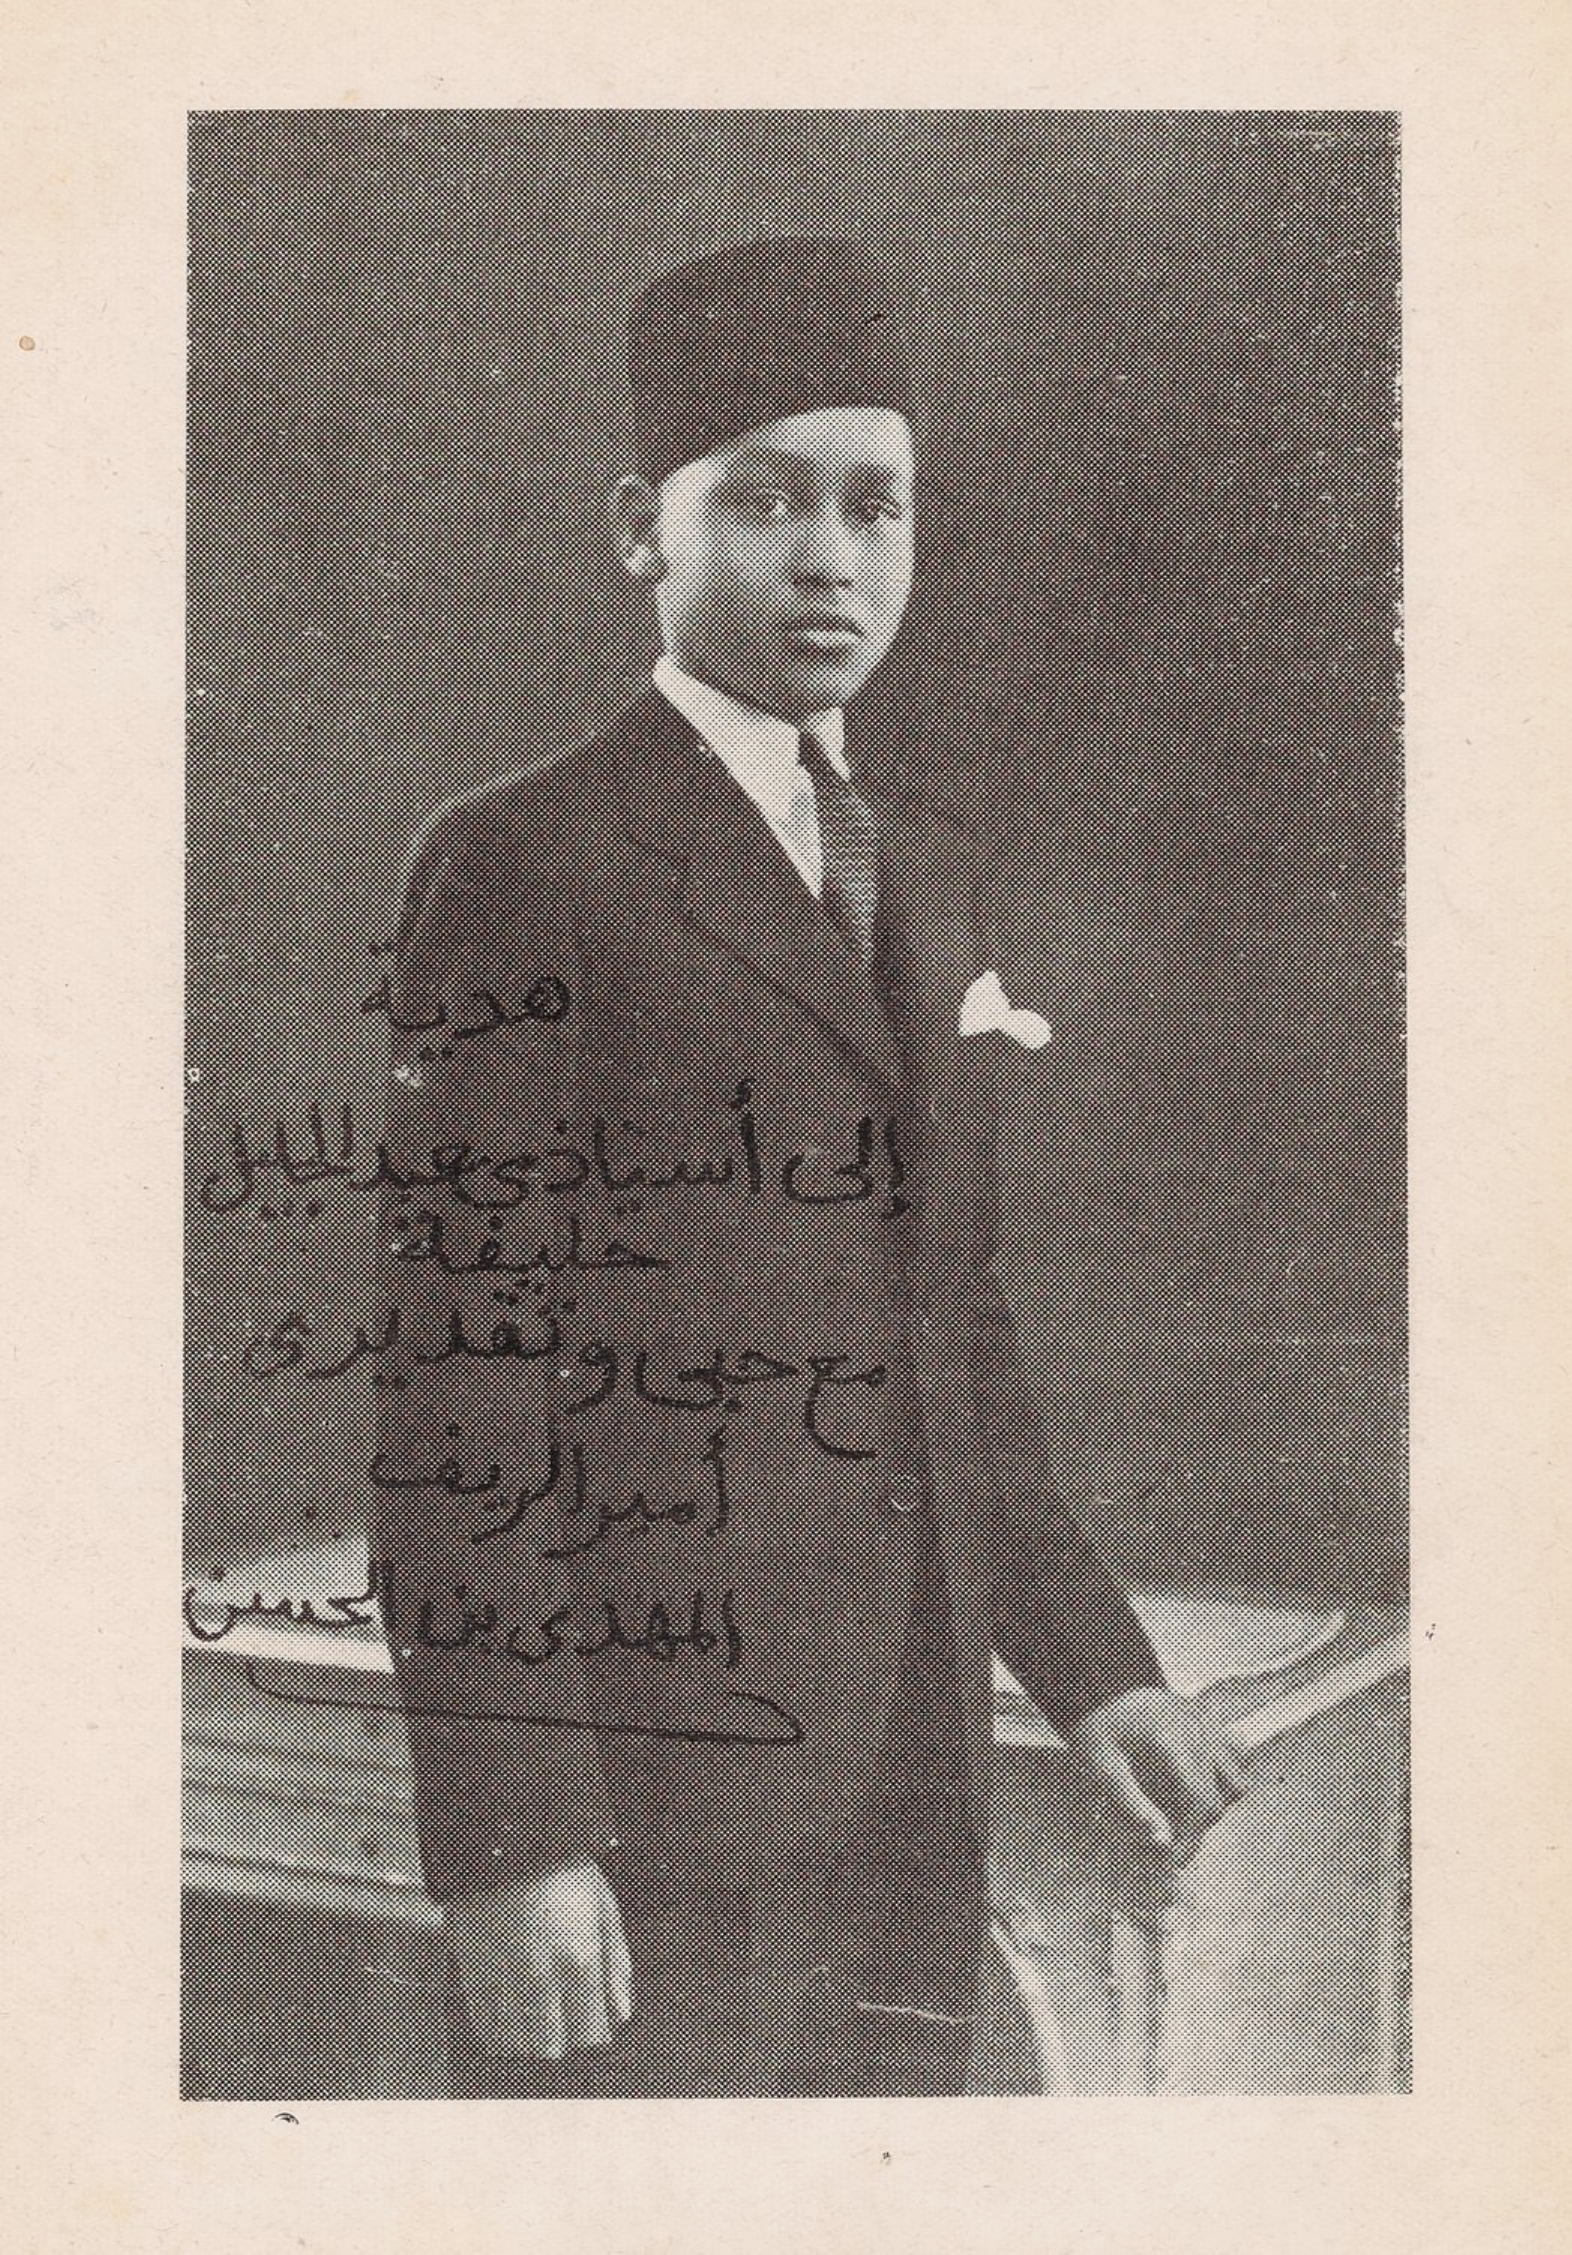 هدية
إلى أستاذي عبد الجليل
خليفة
مع حبي وتقديري
أمير الريف
المهدي بن الحسين